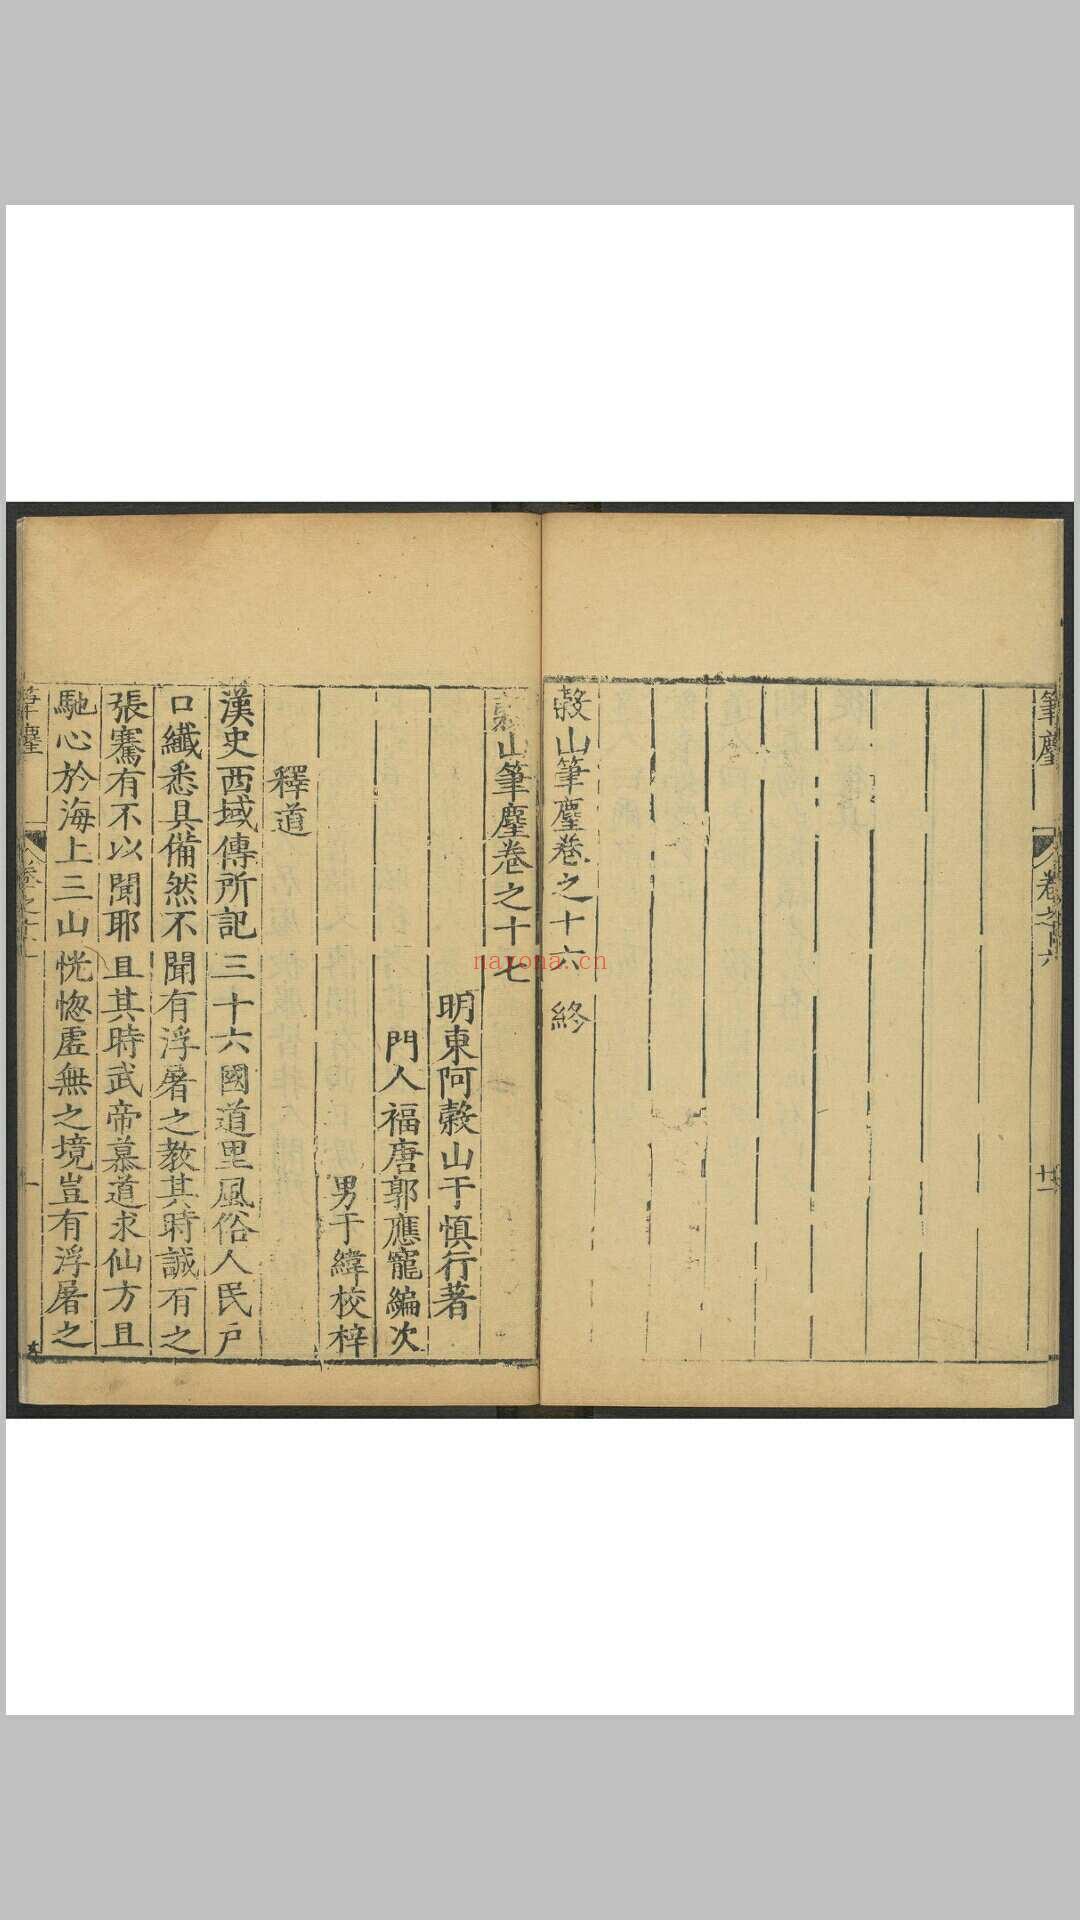 筆麈
卷之十六
十一
穀山筆麈卷之十六 終
穀山筆麈卷之十七
明東阿穀山于慎行著
門人福唐郭應寵編次
男于緯校梓
釋道
漢史西域傳所記三十六國道里風俗人民戶
口纖悉具備然不聞有浮屠之教其時誠有之
張騫有不以聞耶且其時武帝慕道求仙方且
馳心於海上三山恍惚虛無之境豈有浮屠之
筆麈
卷之十七
一
nayona.cn